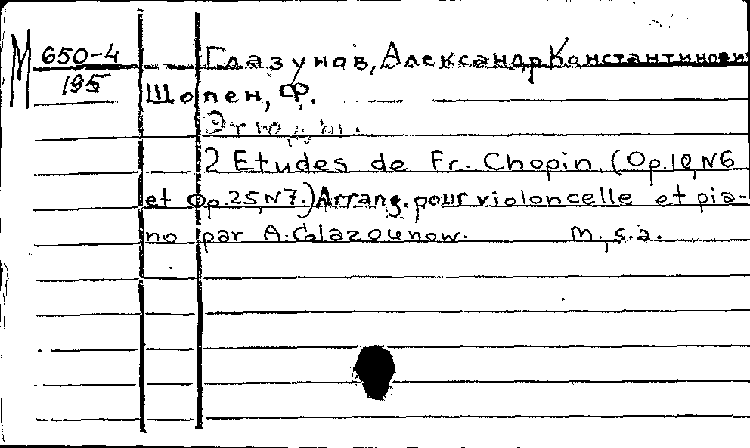 М 650-4 Глазунов, Александр Константинович
195 Шопен, Ф.
Этюды.
2 Etudes de Fr. Chopin (Op.10, N6
et Op.25, N7.) Arrang. pour violoncelle et pia-
no par A. Glazounow. M., s.a.